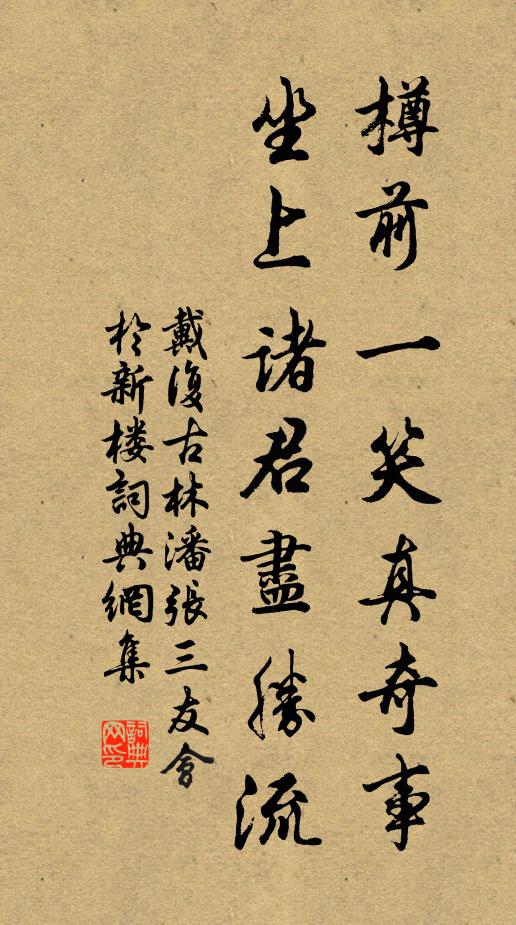 樽前一笑真奇事
坐上諸君盡勝流
戴復古林潘張三友會
於新楼詞典網集
詞典网印